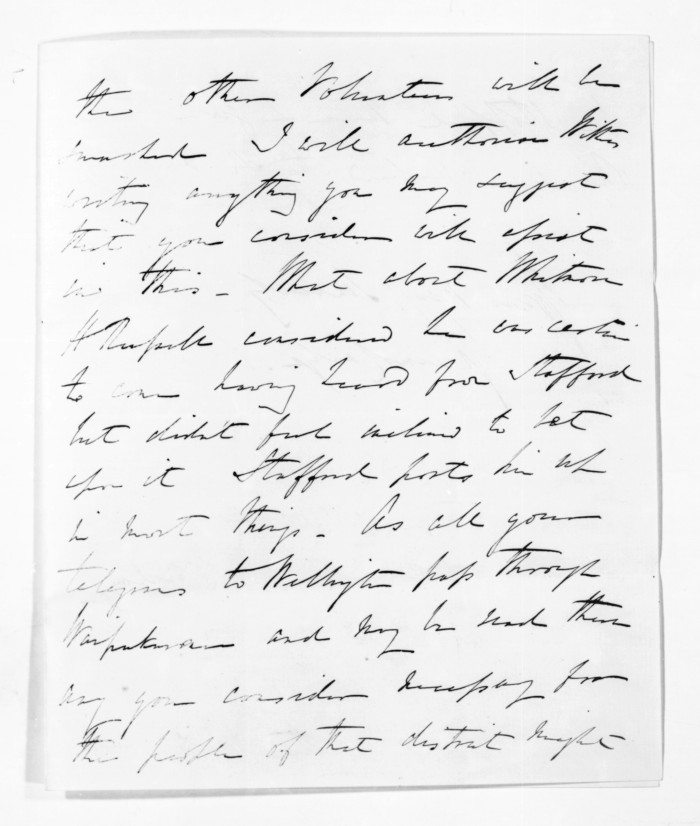 the other Volunteers will be
smashed I will authorise Wilks
writing anything you may suggest
that you consider will assist
in this - What about Whitmore
H Russell considered he was certain
to come having heard from Stafford
but didnt feel inclined to bet
upon it Stafford posts him up
in most things - As all your
telegrams to Wellington pass through
Waipukurau and may be read there
any you consider necessary for
the people of that district might